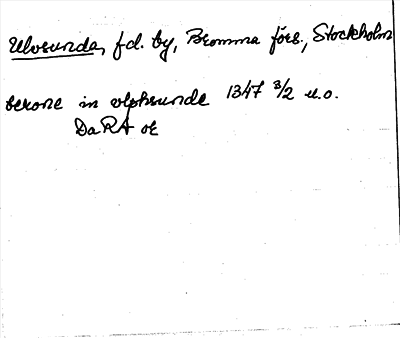 Ulvsunda, fd. by, Bromma förs., Stockholm
bekone in vlphsunde 1347 3/2 u.o.
DaRA or